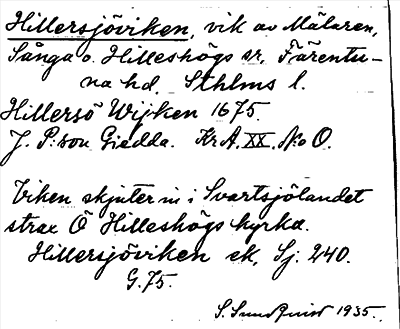 Hillersjöviken, vik av Mälaren,
Sånga o. Hilleshögs sr, Färentu-
na hd. Sthlms l.
Hillersö Wijken 1675.
J. P:son Giedda. KrA. XX. No O.
Viken skjuter in i Svartsjölandet
strax Ö Hilleshögs kyrka.
Hillersjöviken ek, Sj. 240.
G. 75.
S. Sundquist 1935.